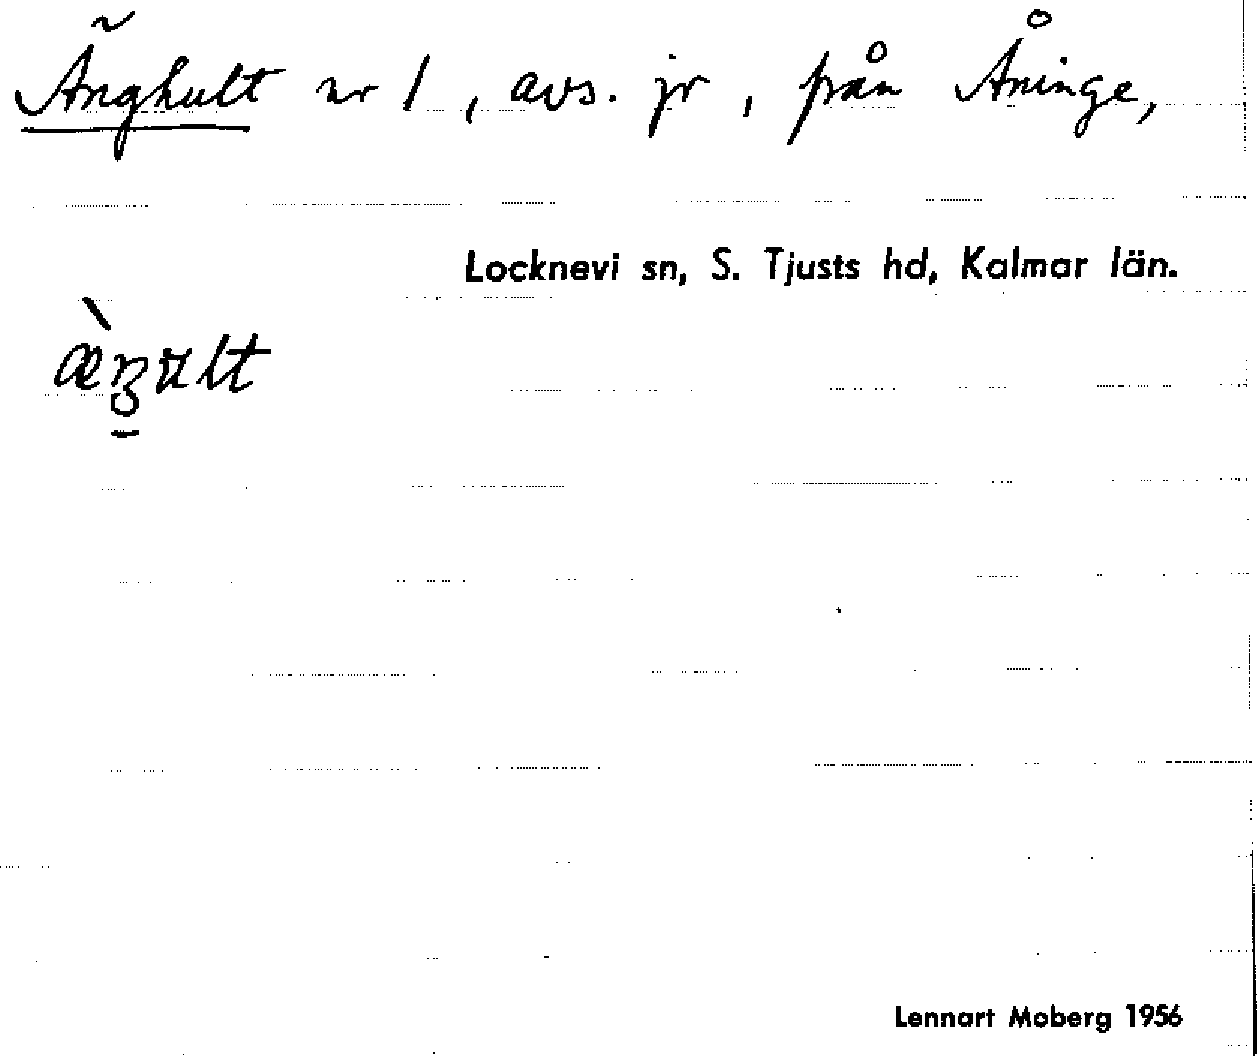 Änghult nr 1, avs. jr, från Åninge,
Locknevi sn, S. Tjusts hd, Kalmar län.
Lennart Moberg 1956